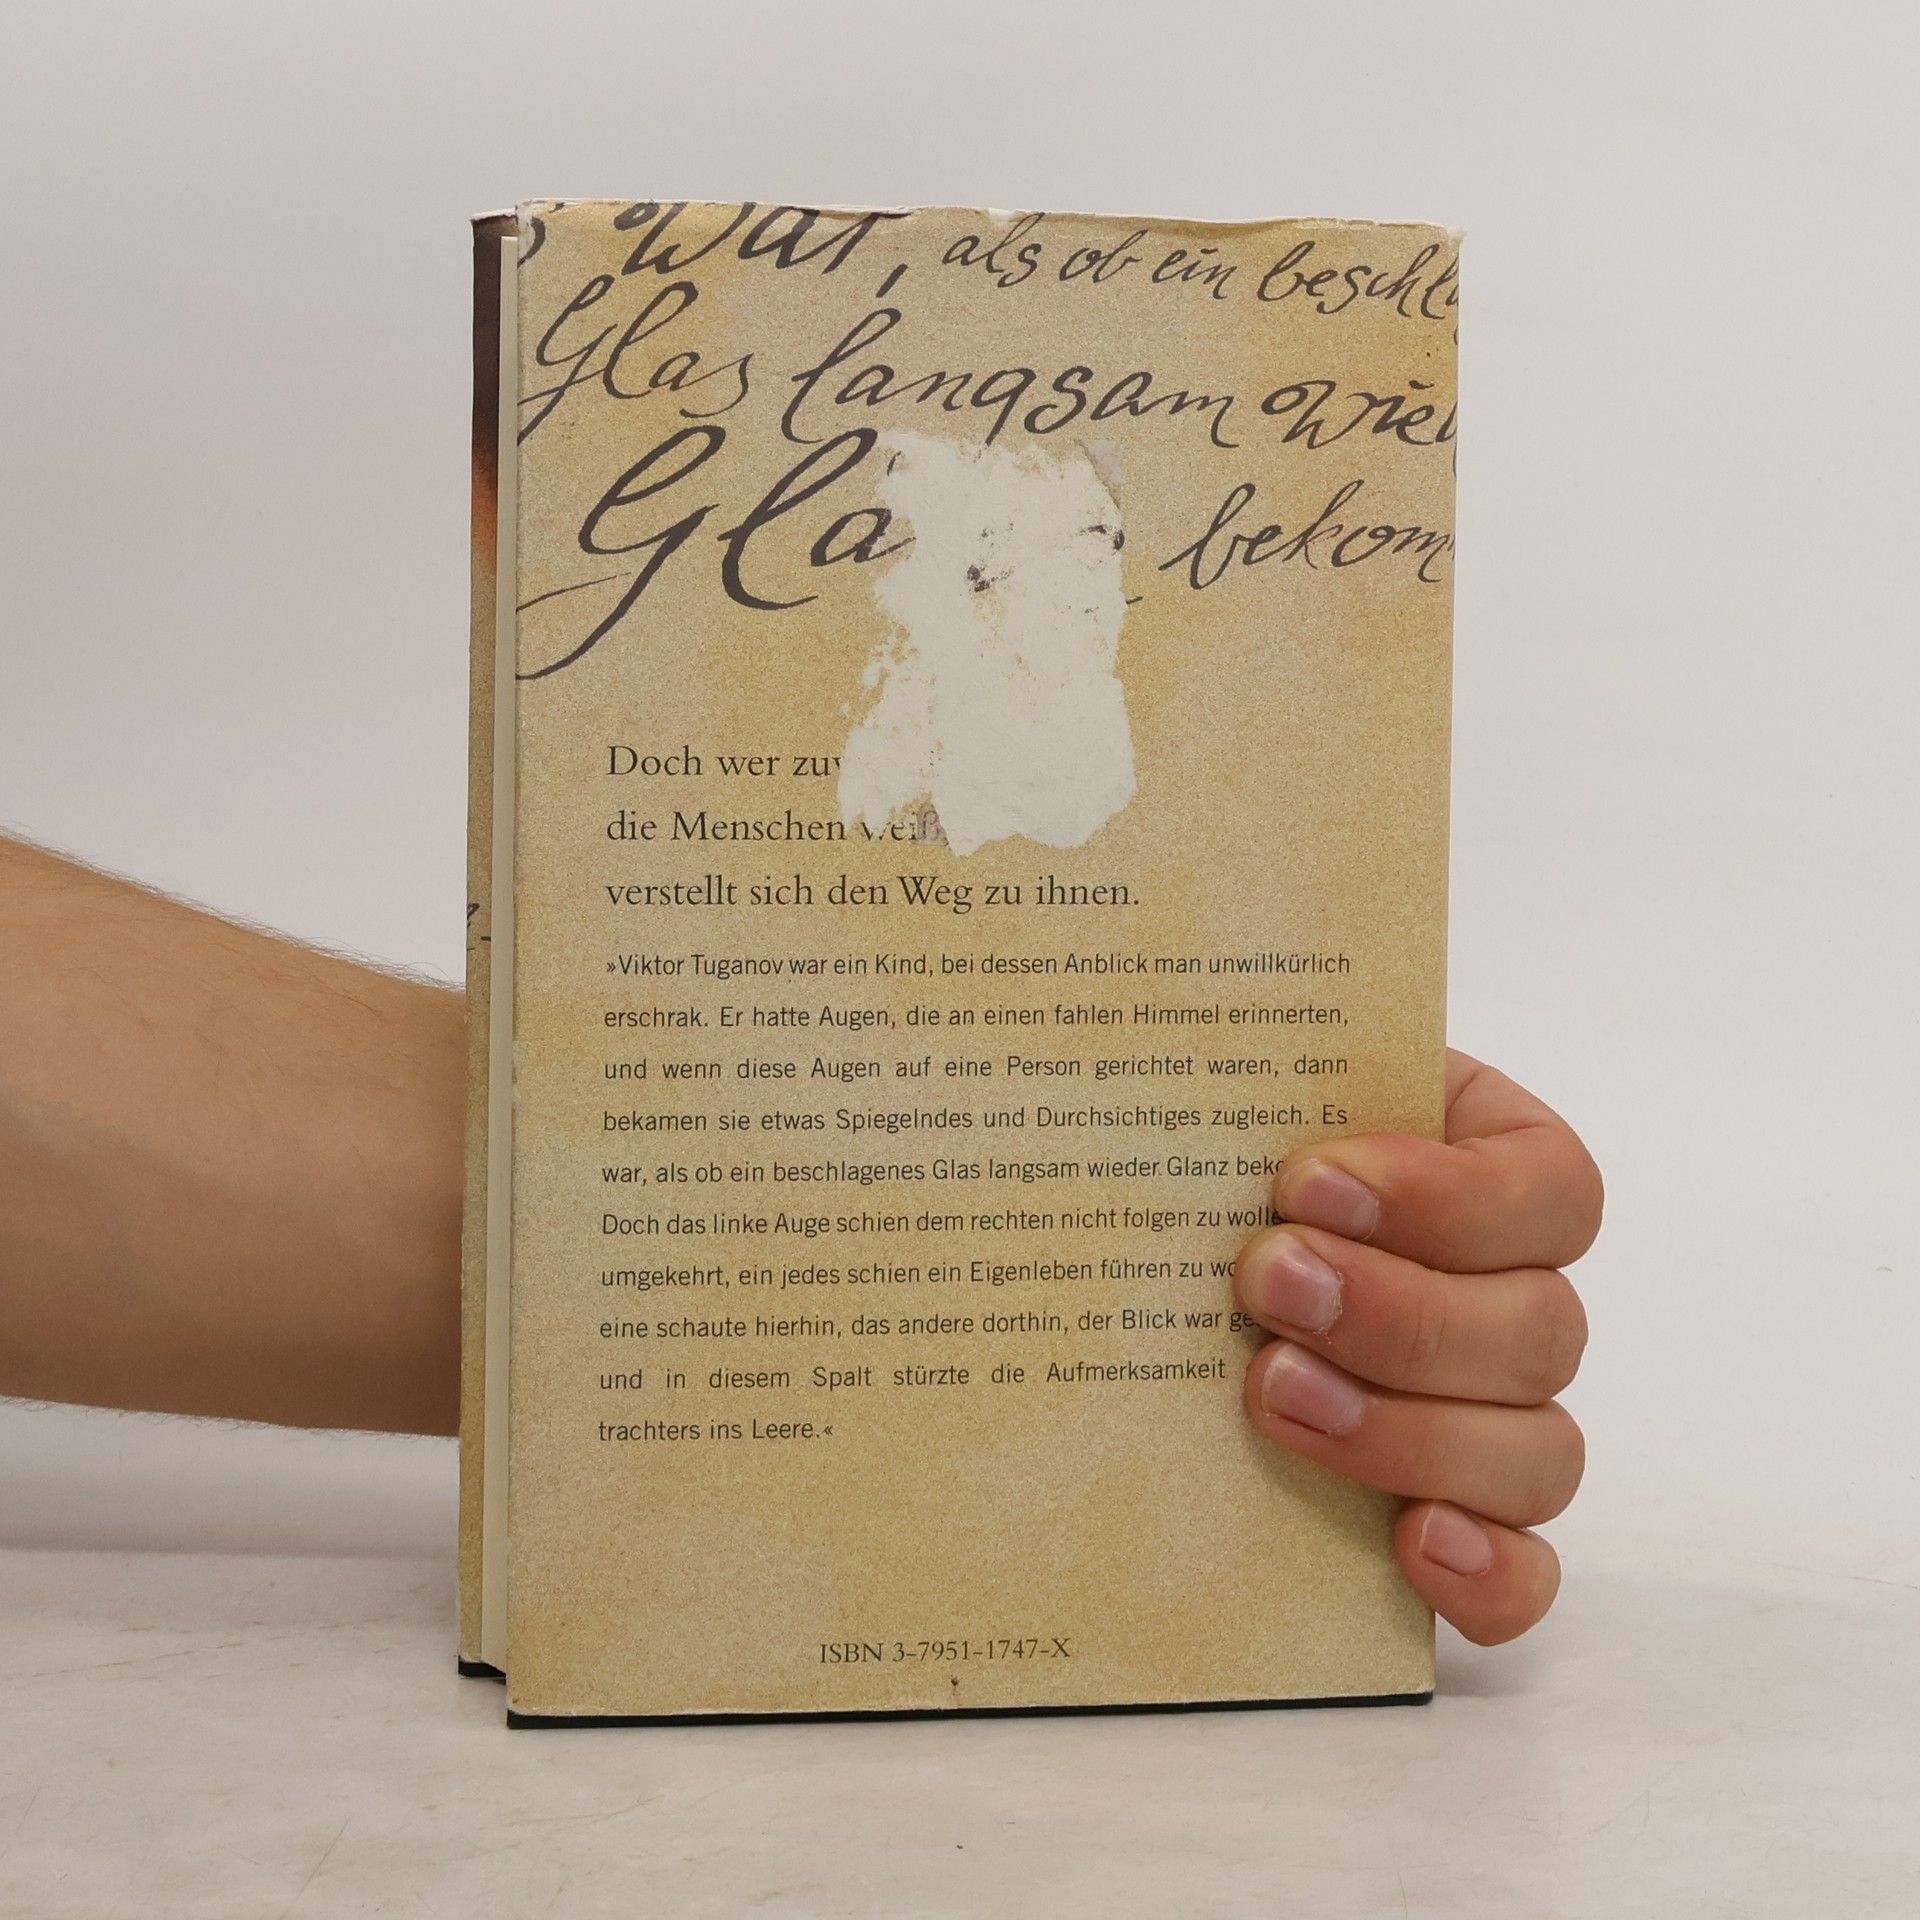 war, als ob ein
Glas langsam
bekom
Doch wer
die Menschen weiß,
verstellt sich den Weg zu ihnen.
»Viktor Tuganov war ein Kind, bei dessen Anblick man unwillkürlich
erschrak. Er hatte Augen, die an einen fahlen Himmel erinnerten,
und wenn diese Augen auf eine Person gerichtet waren, dann
bekamen sie etwas Spiegelndes und Durchsichtiges zugleich. Es
war, als ob ein beschlagenes Glas langsam wieder Glanz
Doch das linke Auge schien dem rechten nicht folgen zu
umgekehrt, ein jedes schien ein Eigenleben führen zu
eine schaute hierhin, das andere dorthin, der Blick war
und in diesem Spalt stürzte die Aufmerksamkeit
trachters ins Leere.«
ISBN 3-7951-1747-X